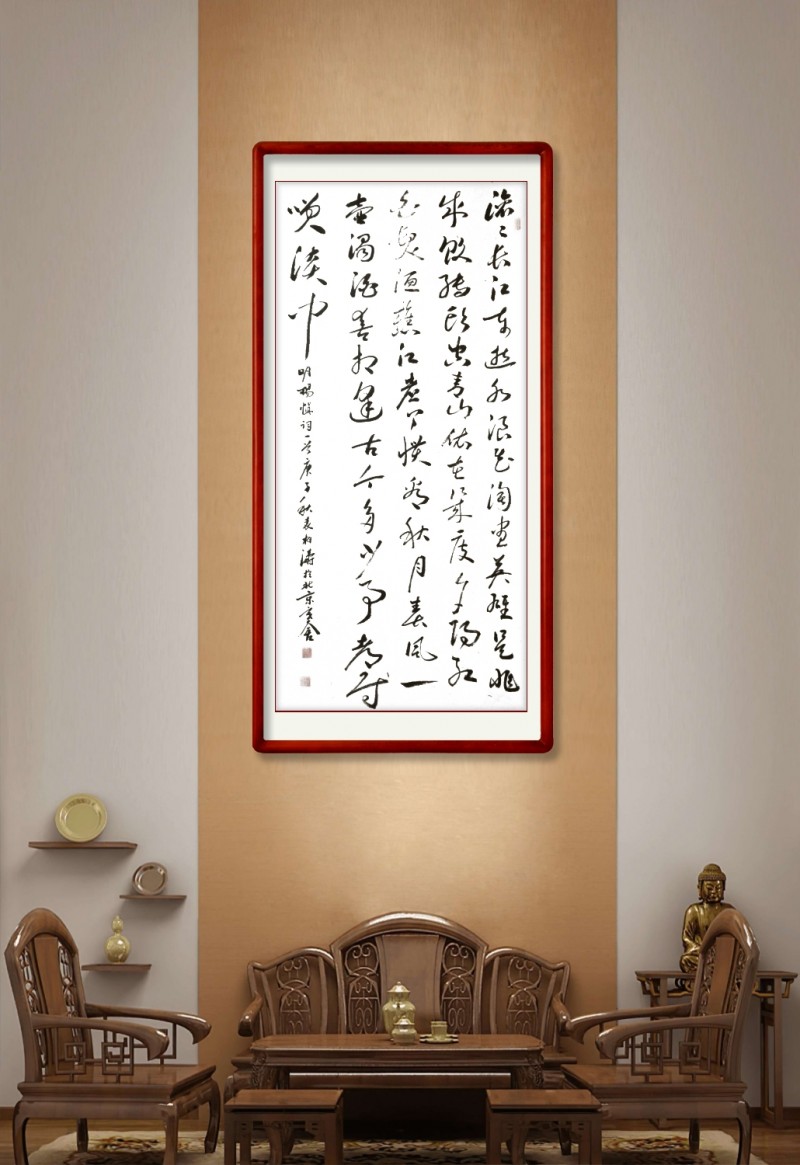 滚〻长江东逝水浪花淘尽英雄是非
成败转头空青山依在几度夕阳红
白发渔樵江渚上惯看秋月春风一
壶浊酒喜相逢古今多少事都付
笑谈中
明杨慎词一首庚子秋袁柏涛于北京寓舍